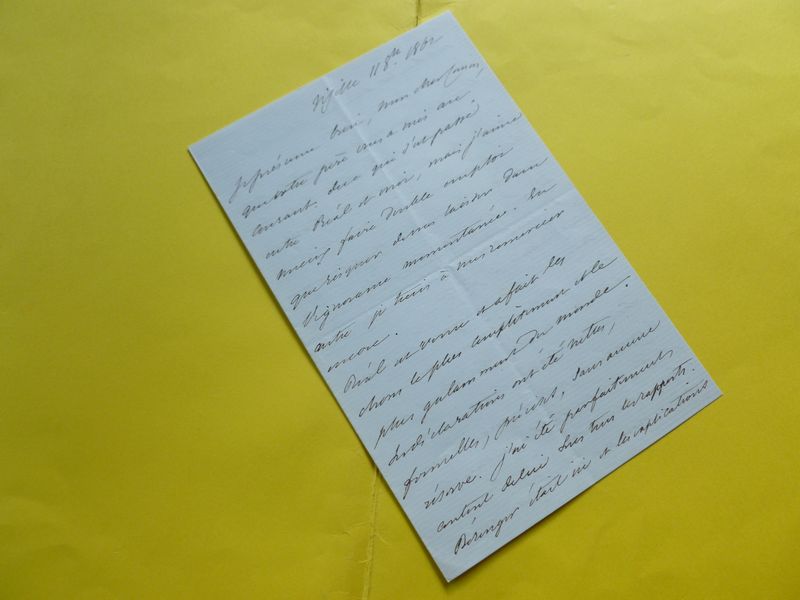 Vizille 11 8bre 1861
Je présume bien, mon cher
que votre père vous a mis au
courant de ce qui s'est passé
entre Réal et moi, mais j'aime
mieux faire double emploi
que risquer de vous laisser dans
l'ignorance momentanée. En
outre je tiens à vous remercier
encore.
Réal est venu et a fait les
choses le plus complètement et le
plus galamment du monde.
Ses déclarations ont été nettes,
formelles, précises, sans aucune
réserve. J'ai été parfaitement
content de lui sous tous les rapports.
Bérenger était ici et les explications